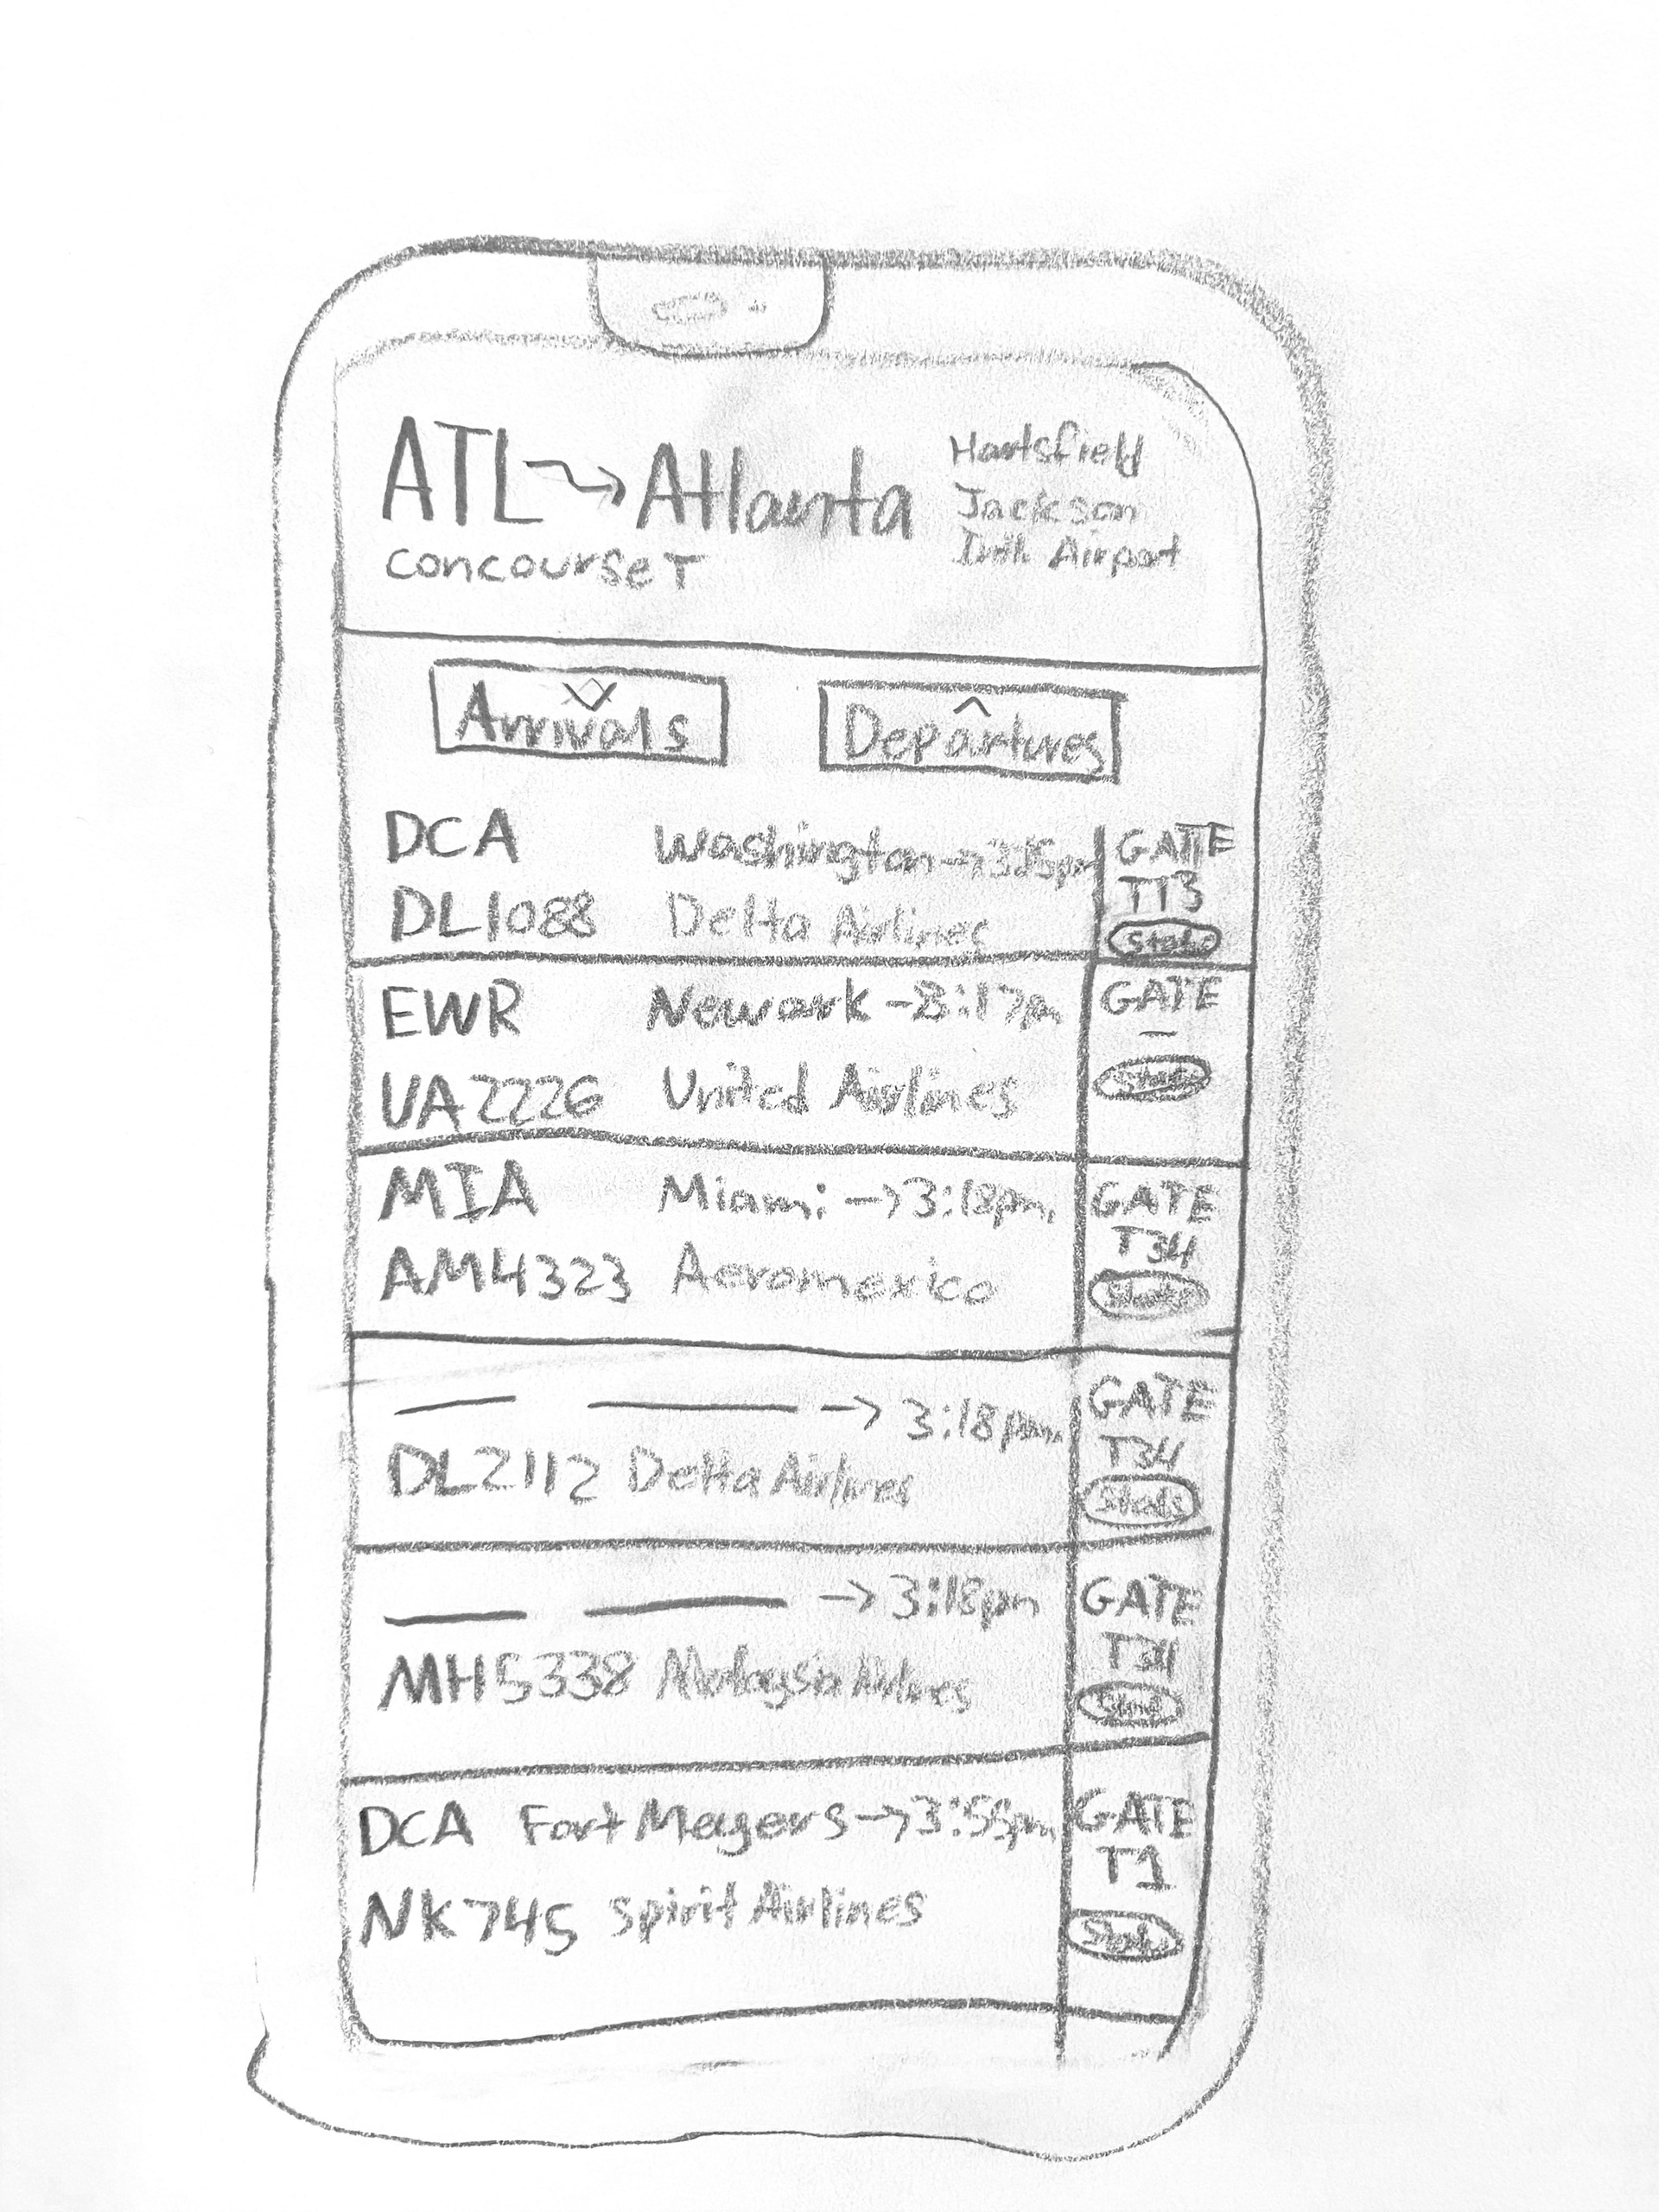 ATL → Atlanta
Concourse T
Hartsfield
Jackson
Intl. Airport
Arrivals
Departures
DCA Washington → 3:15pm GATE
T13
DL1088 Delta Airlines
Stats
EWR Newark - 3:17pm GATE
-
UA2226 United Airlines
MIA Miami → 3:18pm GATE
T34
AM4323 Aeromexico
— — → 3:18pm GATE
T34
DL2112 Delta Airlines
Stats
— — → 3:18pm GATE
T34
MH5338 Malaysia Airlines
DCA Fort Meyers → 3:55pm GATE
T1
NK745 Spirit Airlines